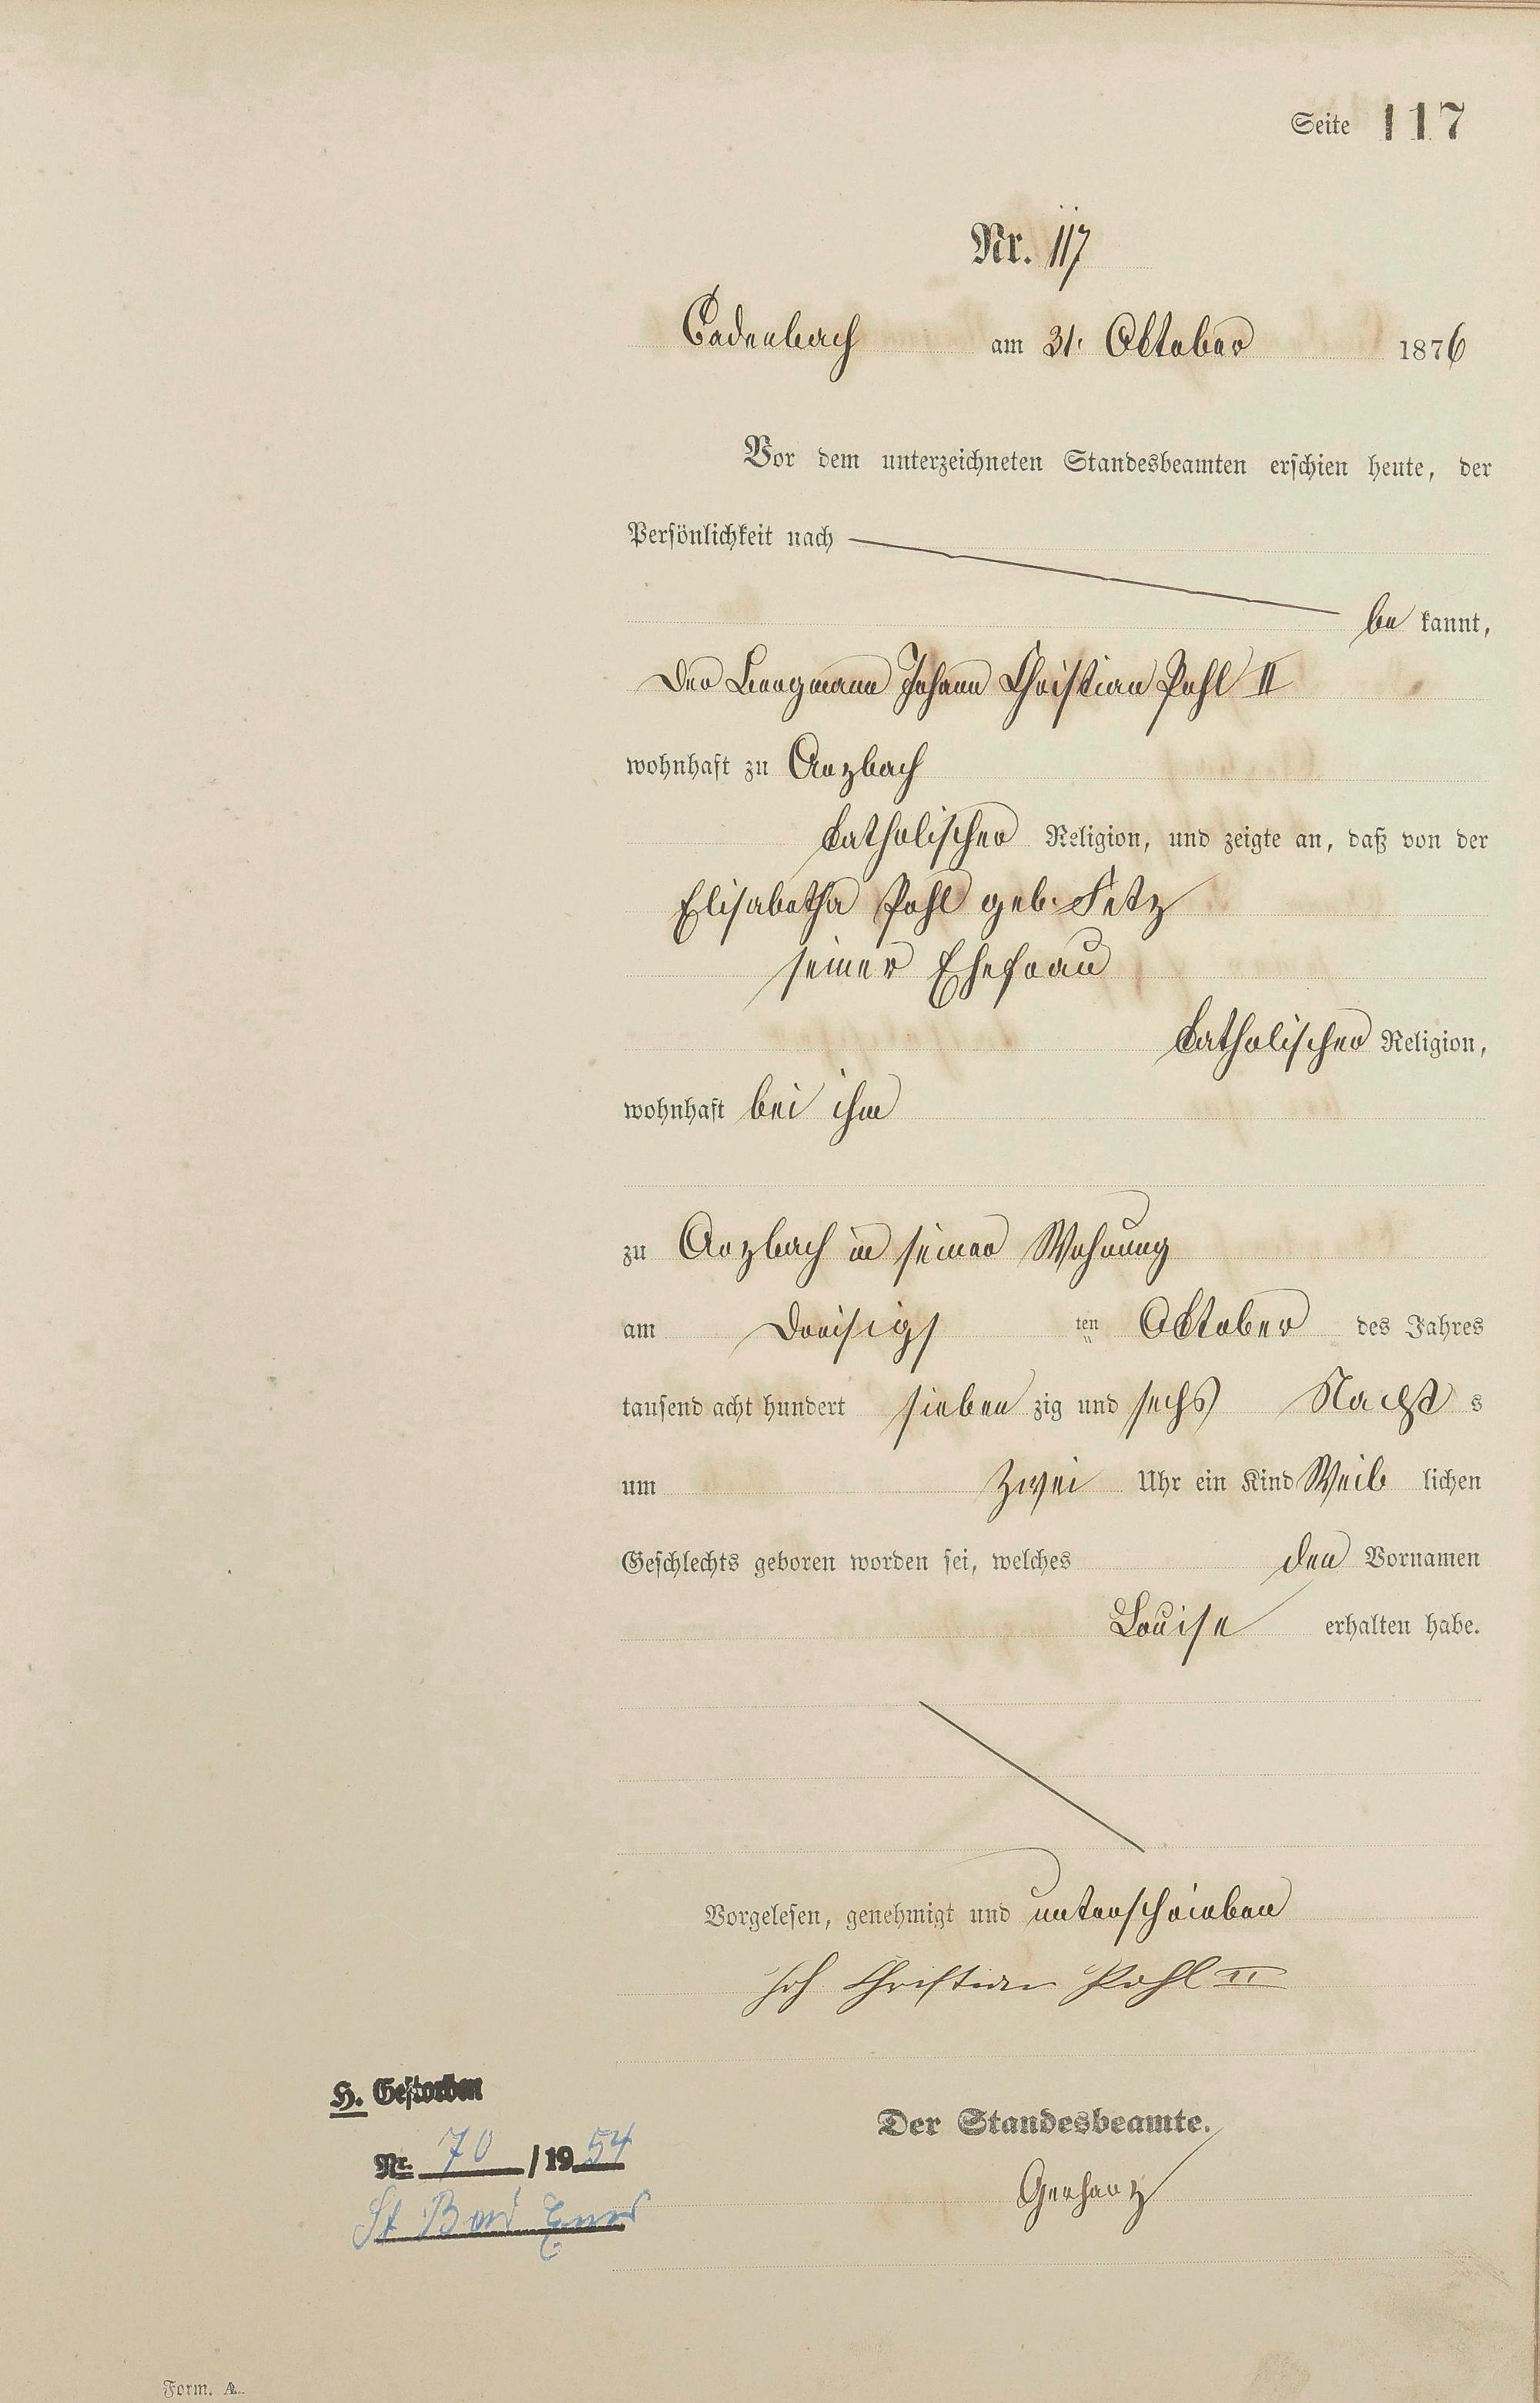 Seite 117
Nr. 117
Cadenbach am 31. Oktober 1876
Vor dem unterzeichneten Standesbeamten erschien heute, der
Persönlichkeit nach
be kannt,
Der Bergmann Johann Christian Pohl II
wohnhaft zu Arzbach
katholischer Religion, und zeigte an, daß von der
Elisabetha Pohl geb. Fetz
seiner Ehefrau
katholischer Religion,
wohnhaft bei ihm
zu Arzbach in seiner Wohnung
am Dreisigs ten Oktober des Jahres
tausend acht hundert sieben zig und sechs Nacht s
um zwei Uhr ein Kind Weib lichen
Geschlechts geboren worden sei, welches den Vornamen
Louise erhalten habe.
Vorgelesen, genehmigt und unterschrieben
Joh. Christian Pohl II
H. Gestorben
Der Standesbeamte.
Nr. 70 /1954
Gerharz
St Bad Ems
Form. A.